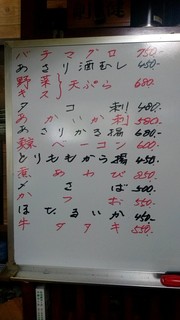 バチマグロ 750-
あさり酒むし 450-
野菜
キス }天ぷら 680-
タコ刺 480-
あかいか刺 580-
あさりかき揚 680-
ベーコン 600-
とりももから揚 450-
煮あわび 850-
〆さば 500-
かつお 550-
ほたるいか 450-
牛タタキ 550-